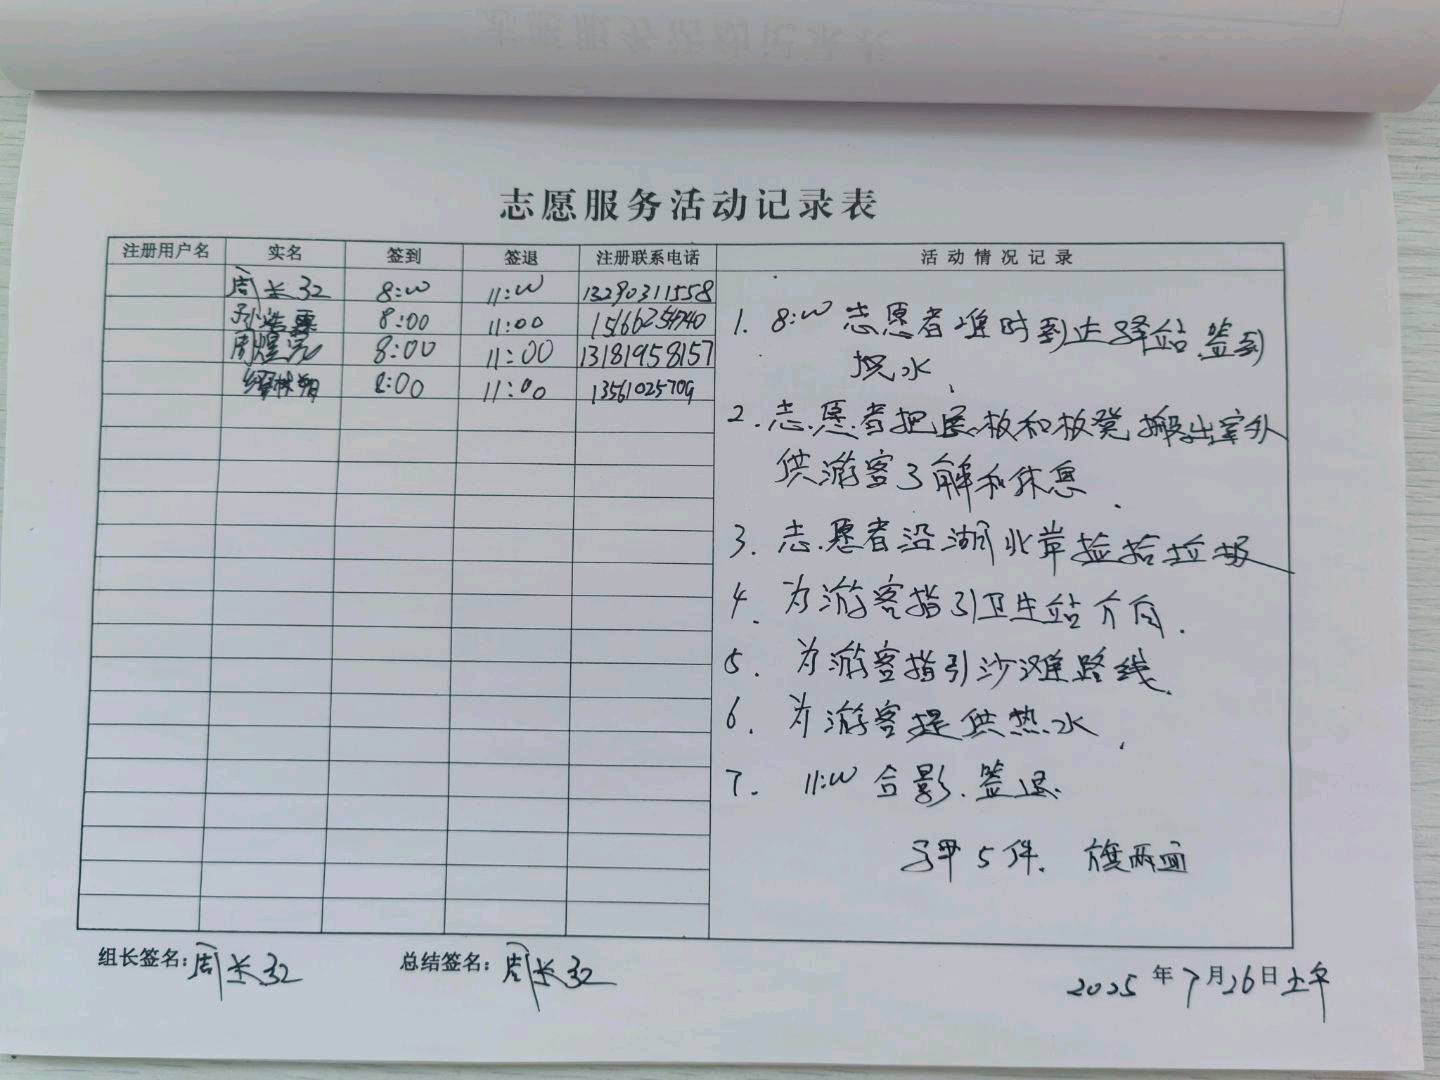 志愿服务活动记录表
注册用户名 实名 签到 签退 注册联系电话 活动情况记录
周长江 8:00 11:00 13290311558
孙浩霖 8:00 11:00
周煜 8:00 11:00 13181958157
8:00 11:00 13561025709
1. 8:00 志愿者准时到达驿站,签到
水,
2. 志愿者把展板和板凳搬出室外
供游客了解和休息.
3. 志愿者沿湖北岸捡拾垃圾
4. 为游客指引卫生站方向.
5. 为游客指引沙滩路线.
6. 为游客提供热水,
7. 11:00 合影.签退.
马甲5件. 旗两面
组长签名:周长江 总结签名:周长江
2025年7月26日上午